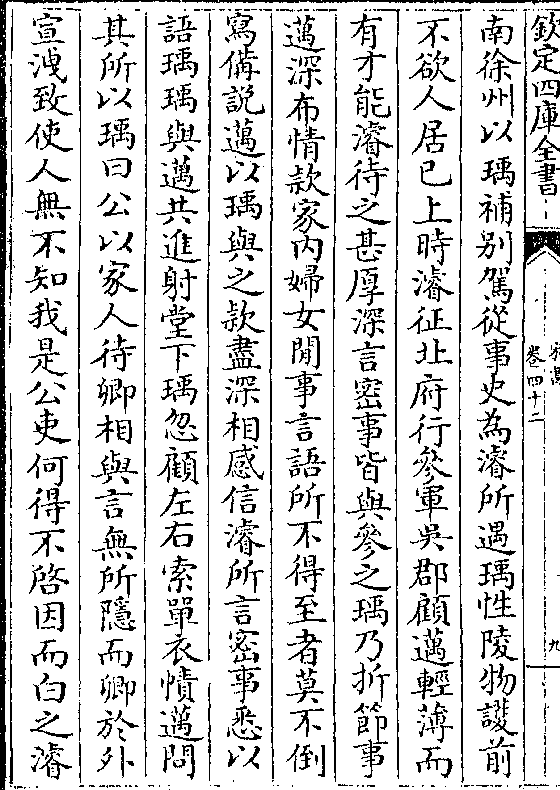 欽定四庫全書
卷四十二
九
南徐州以瑀補别駕從事史為濬所遇瑀性陵物護前
不欲人居已上時濬征北府行參軍吳郡顧邁輕薄而
有才能濬待之甚厚深言密事皆與參之瑀乃折節事
邁深布情款家内婦女閒事言語所不得至者莫不倒
寫備說邁以瑀與之款盡深相感信濬所言密事悉以
語瑀瑀與邁共進射堂下瑀忽顧左右索單衣幘邁問
其所以瑀曰公以家人待卿相與言無所隱而卿於外
宣洩致使人無不知我是公吏何得不啓因而白之濬